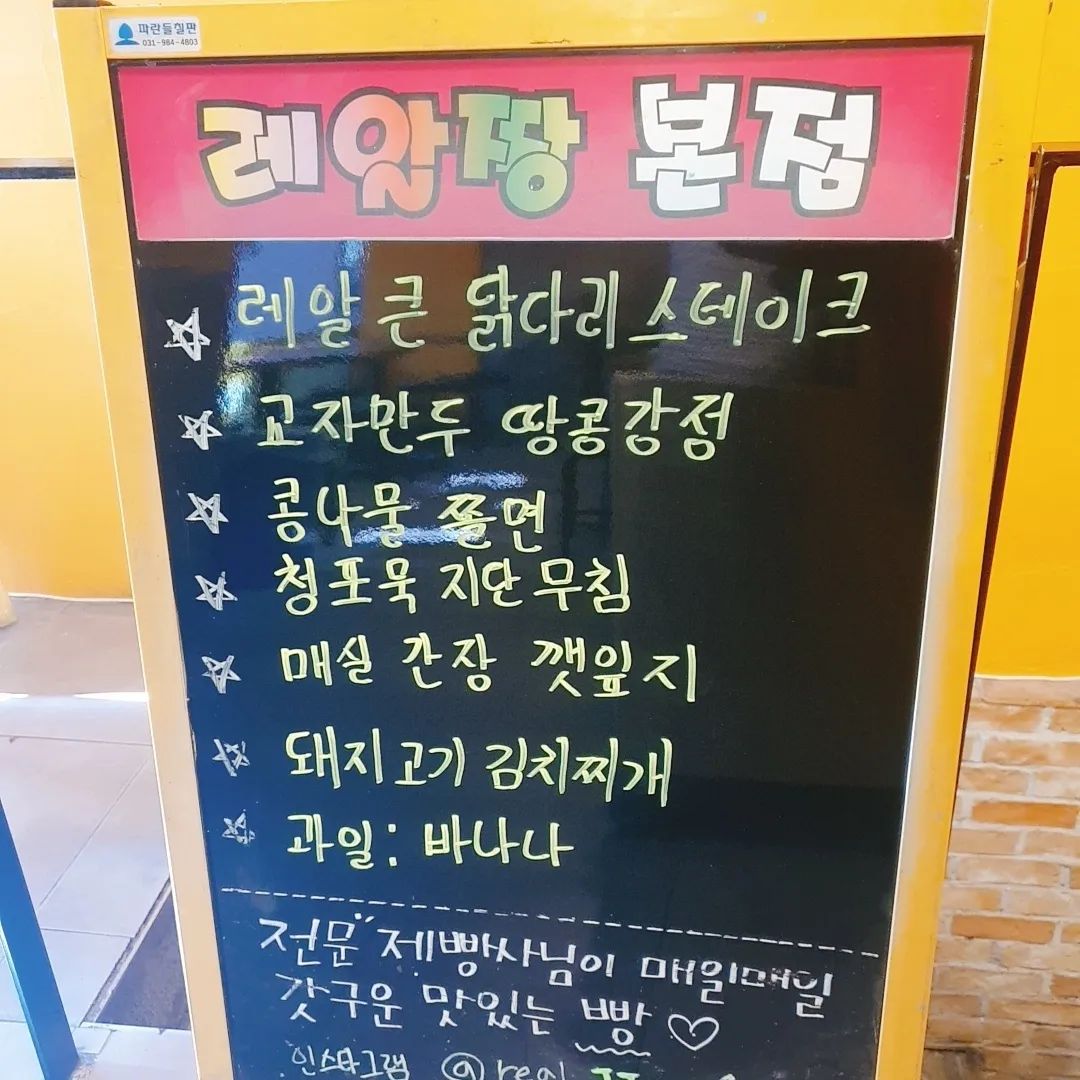 파란들칠판
031-984-4803
레알짱 본점
레알 큰 닭다리 스테이크
교자만두 땅콩강정
콩나물 쫄면
청포묵 지단 무침
매실 간장 깻잎지
돼지고기 김치찌개
과일: 바나나
전문 제빵사님이 매일매일
갓구운 맛있는 빵♡
인스타그램 @real